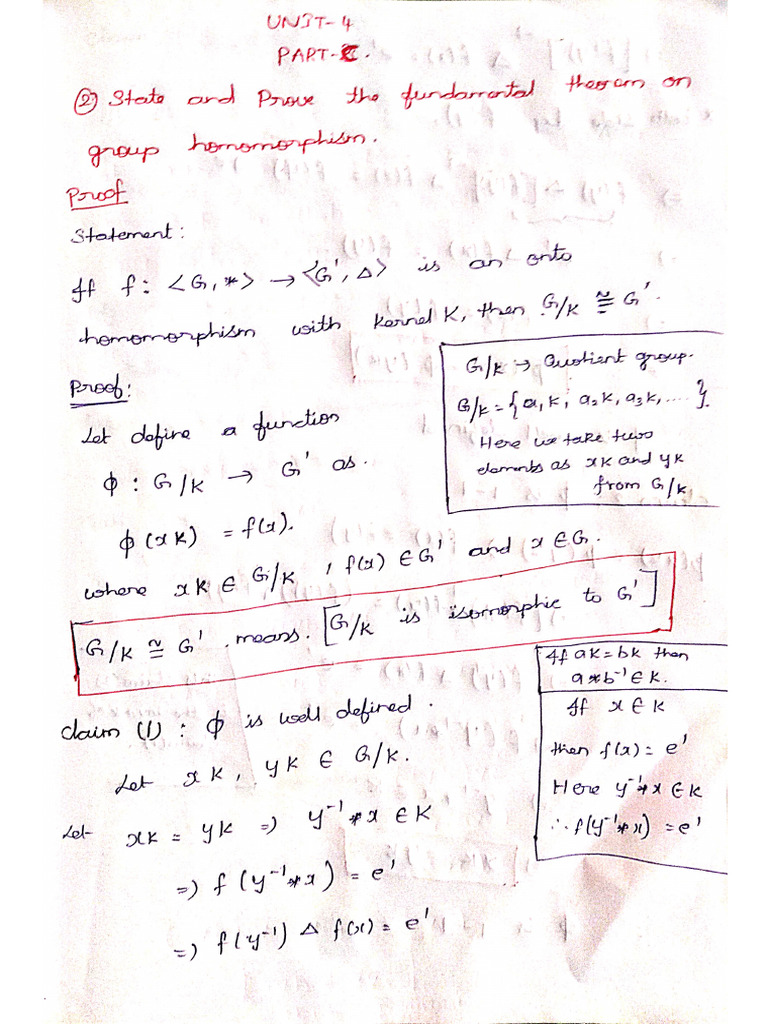 UNIT-4
PART-C.
② State and Prove the fundamental theorem on
group homomorphism.
Proof
Statement:
If f: <G,*> → <G', Δ> is an onto
homomorphism with kernel K, then G/K ≅ G'.
G/K → Quotient group.
G/K = {a₁K, a₂K, a₃K, .... }.
Here we take two
elements as xK and yK
from G/K
Proof:
Let define a function
ϕ : G/K → G' as.
ϕ (xK) = f(x).
where xK ∈ G/K , f(x) ∈ G' and x ∈ G.
G/K ≅ G' . means. [G/K is isomorphic to G']
If aK = bK then
a * b⁻¹ ∈ K.
If x ∈ K
then f(x) = e'
Here y⁻¹*x ∈ K
∴ f(y⁻¹*x) = e'
claim (1) : ϕ is well defined.
Let xK, yK ∈ G/K.
Let xK = yK ⇒ y⁻¹*x ∈ K
⇒ f(y⁻¹*x) = e'
⇒ f(y⁻¹) Δ f(x) = e'